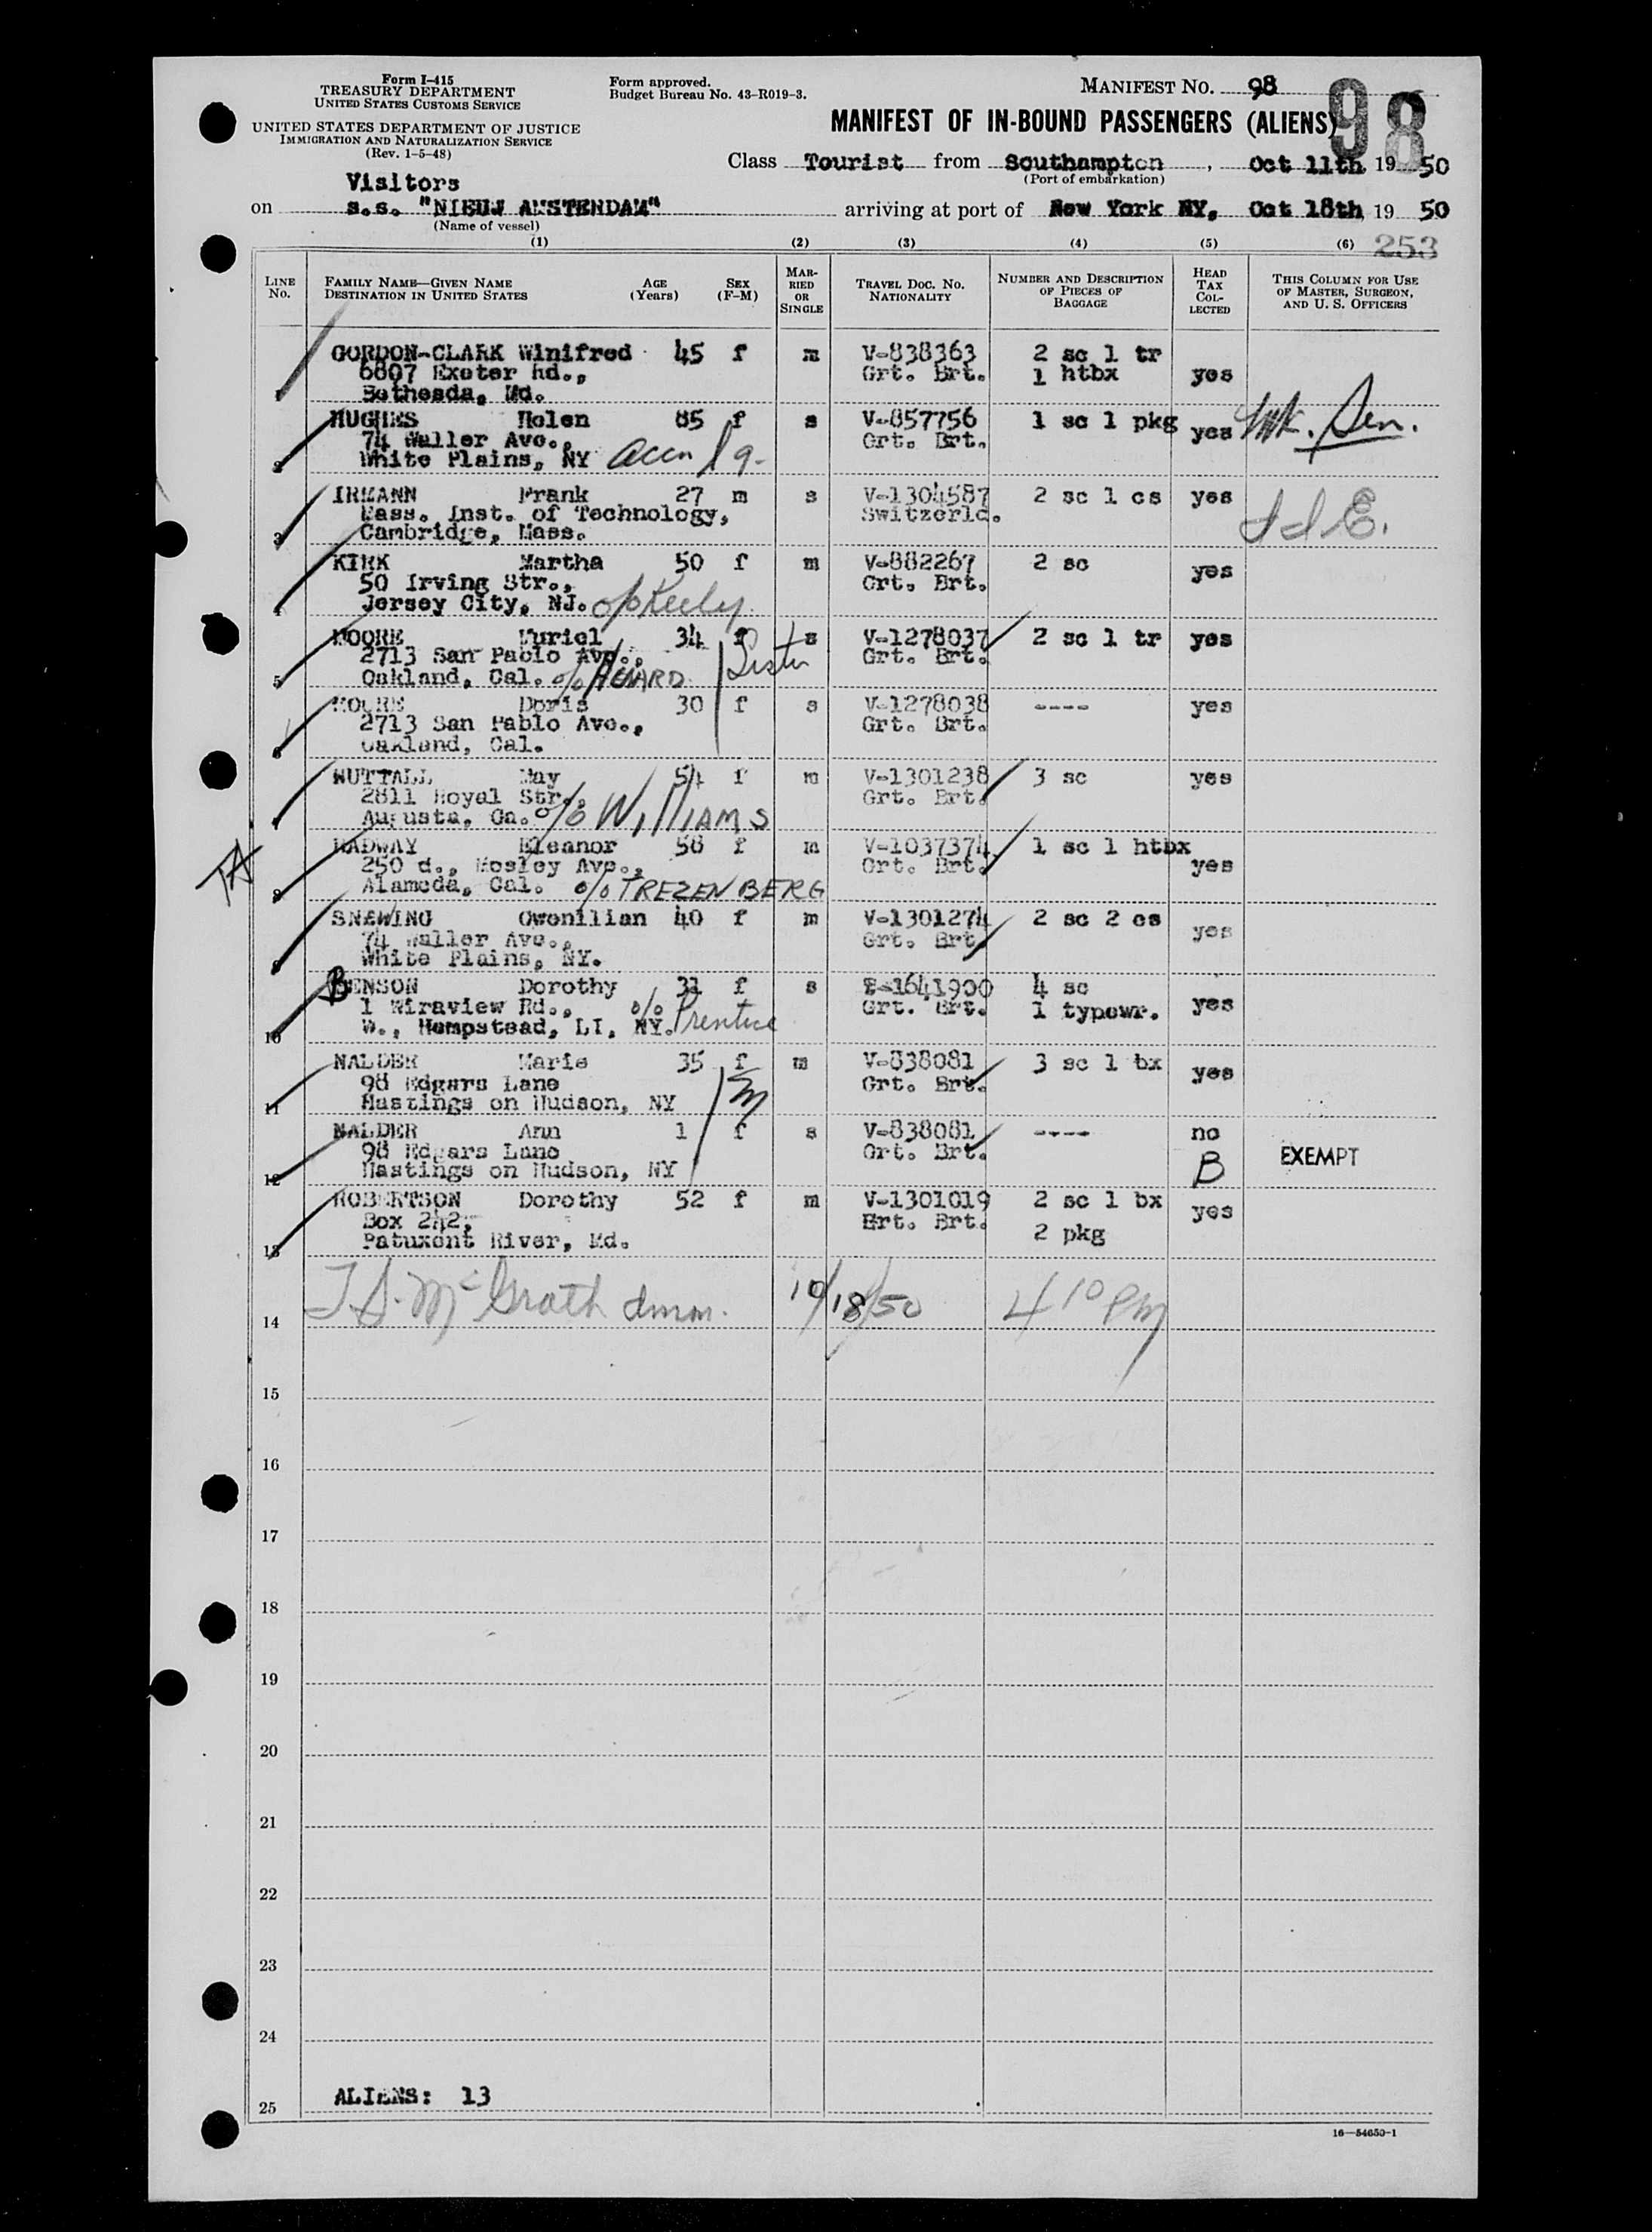 Form I-415
TREASURY DEPARTMENT
UNITED STATES CUSTOMS SERVICE
UNITED STATES DEPARTMENT OF JUSTICE
IMMIGRATION AND NATURALIZATION SERVICE
(Rev. 1-5-48)
Form approved.
Budget Bureau No. 43-R019-3.
MANIFEST NO. 98
98
MANIFEST OF IN-BOUND PASSENGERS (ALIENS)
Class Tourist from Southampton, Oct 11th, 19 50
(Port of embarkation)
Visitors
on s.s. "NIEUW AMSTERDAM" arriving at port of New York NY, Oct 18th, 19 50
(Name of vessel)
(1) (2) (3) (4) (5) (6) 253
LINE No.
FAMILY NAME—GIVEN NAME
DESTINATION IN UNITED STATES
AGE (Years)
SEX (F-M)
MARRIED OR SINGLE
TRAVEL DOC. NO.
NATIONALITY
NUMBER AND DESCRIPTION OF PIECES OF BAGGAGE
HEAD TAX COLLECTED
THIS COLUMN FOR USE OF MASTER, SURGEON, AND U. S. OFFICERS
1 GORDON-CLARK Winifred 45 f m V-838363 2 sc 1 tr
6807 Exeter Rd., Grt. Brt. 1 htbx yes
Bethesda, Md.
2 HUGHES Helen 85 f s V-857756 1 sc 1 pkg yes Sen.
74 Waller Ave., Grt. Brt.
White Plains, NY
3 IRMANN Frank 27 m s V-1304587 2 sc 1 cs yes
Mass. Inst. of Technology, Switzerld.
Cambridge, Mass.
4 KIRK Martha 50 f m V-882267 2 sc yes
50 Irving Str., Grt. Brt.
Jersey City, NJ. c/o Keely
5 MOORE Muriel 34 f s V-1278037 2 sc 1 tr yes
2713 San Pablo Ave., Grt. Brt. Sister
Oakland, Cal.
6 MOORE Doris 30 f s V-1278038 ---- yes
2713 San Pablo Ave., Grt. Brt.
Oakland, Cal.
7 NUTTALL May 54 f m V-1301238 3 sc yes
2811 Royal Str., Grt. Brt.
Augusta, Ga. c/o WILLIAMS
8 RADWAY Eleanor 56 f m V-1037374 1 sc 1 htbx yes
250 d., Mosley Ave., Grt. Brt.
Alameda, Cal. c/o TREZENBERG
9 SNEWING Gwenllian 40 f m V-1301274 2 sc 2 cs yes
74 Waller Ave., Grt. Brt.
White Plains, NY.
10 BENSON Dorothy 31 f s 1641900 4 sc
1 Miraview Rd., Grt. Brt. 1 typewr. yes
W., Hempstead, LI, NY. c/o Prentice
11 NALDER Marie 35 f m V-838081 3 sc 1 bx yes
98 Edgars Lane Grt. Brt.
Hastings on Hudson, NY
12 NALDER Ann 1 f s V-838081 ---- no
98 Edgars Lane Grt. Brt. B EXEMPT
Hastings on Hudson, NY
13 ROBERTSON Dorothy 52 f m V-1301019 2 sc 1 bx yes
Box 242, Ert. Brt. 2 pkg
Patuxent River, Md.
14 McGrath 10/18/50 4 10 PM
15
16
17
18
19
20
21
22
23
24
25 ALIENS: 13
16—54650-1